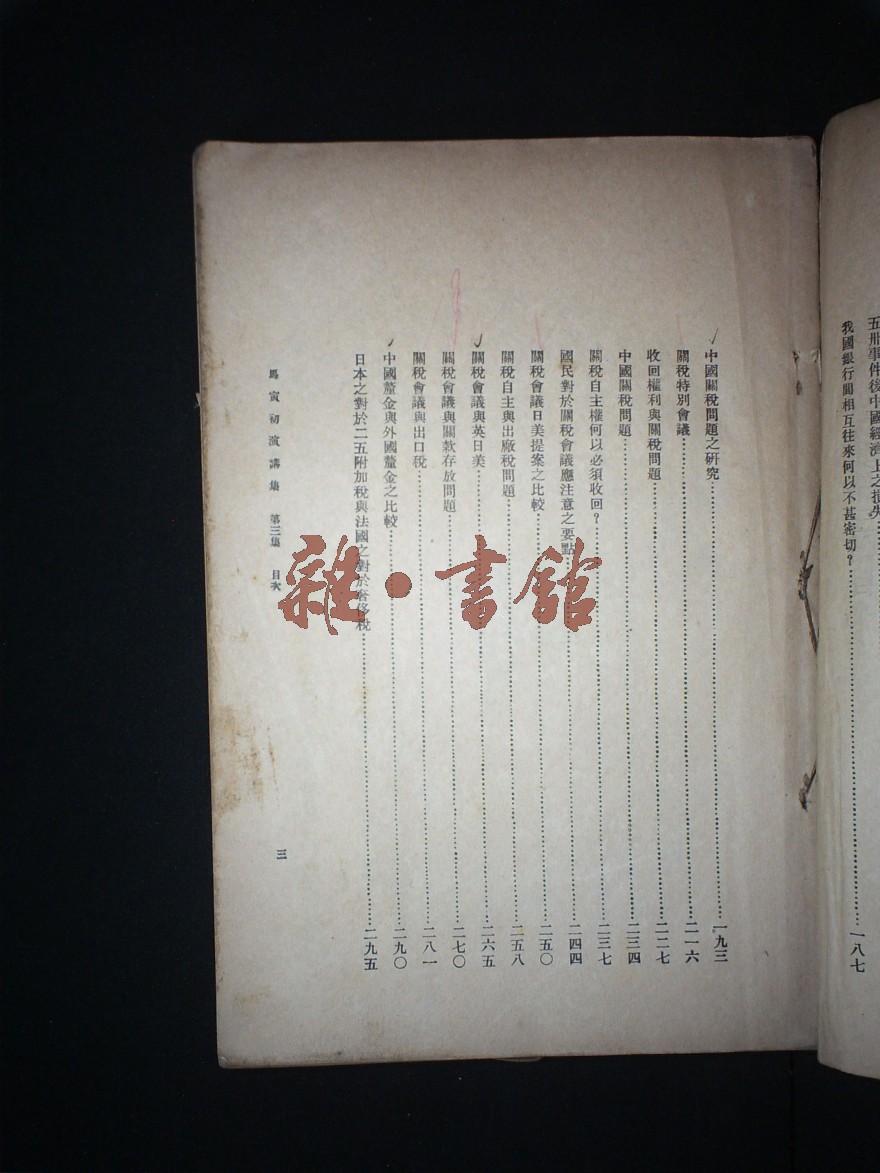 五卅事件後中國經濟上之損失
我國銀行間相互往來何以不甚密切？……一八七
中國關稅問題之研究……一九三
關稅特別會議……二一六
收回權利與關稅問題……二二七
中國關稅問題……二三四
關稅自主權何以必須收回？……二三七
國民對於關稅會議應注意之要點……二四四
關稅會議日美提案之比較……二五〇
關稅自主與出廠稅問題……二五八
關稅會議與英日美……二六五
關稅會議與關款存放問題……二七〇
關稅會議與出口稅……二八一
中國釐金與外國釐金之比較……二九〇
日本之對於二五附加稅與法國之對於奢侈稅……二九五
馬寅初演講集 第三集 目次
三
雜·書館